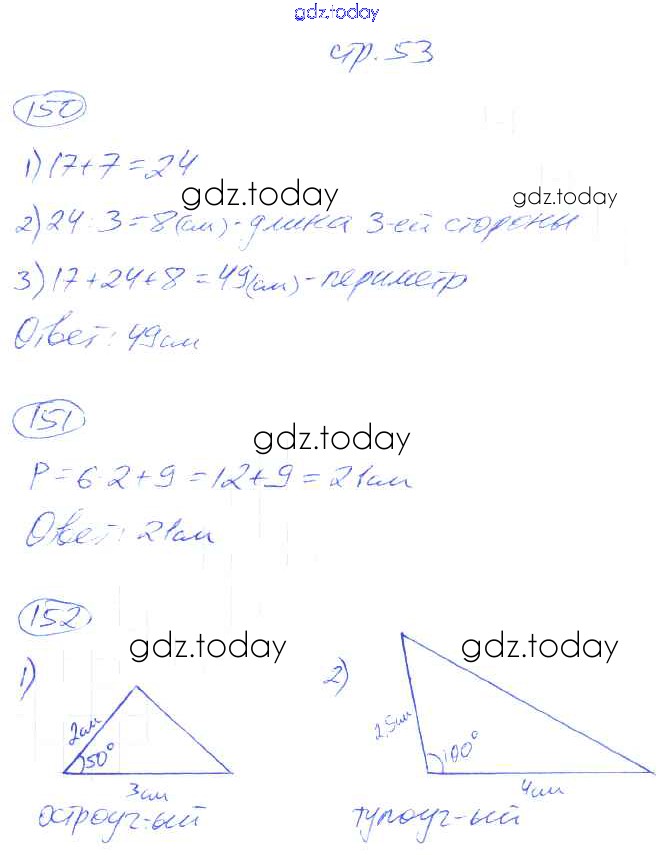 gdz.today
стр. 53
150
1) 17+7=24
gdz.today
gdz.today
2) 24:3=8(см)-длина 3-ей стороны
3) 17+24+8=49(см)-периметр
Ответ: 49см
151
gdz.today
P=6·2+9=12+9=21см
Ответ: 21см
152
gdz.today
gdz.today
1)
2)
2см
50°
3см
остроуг-ый
2,5см
100°
4см
тупоуг-ый